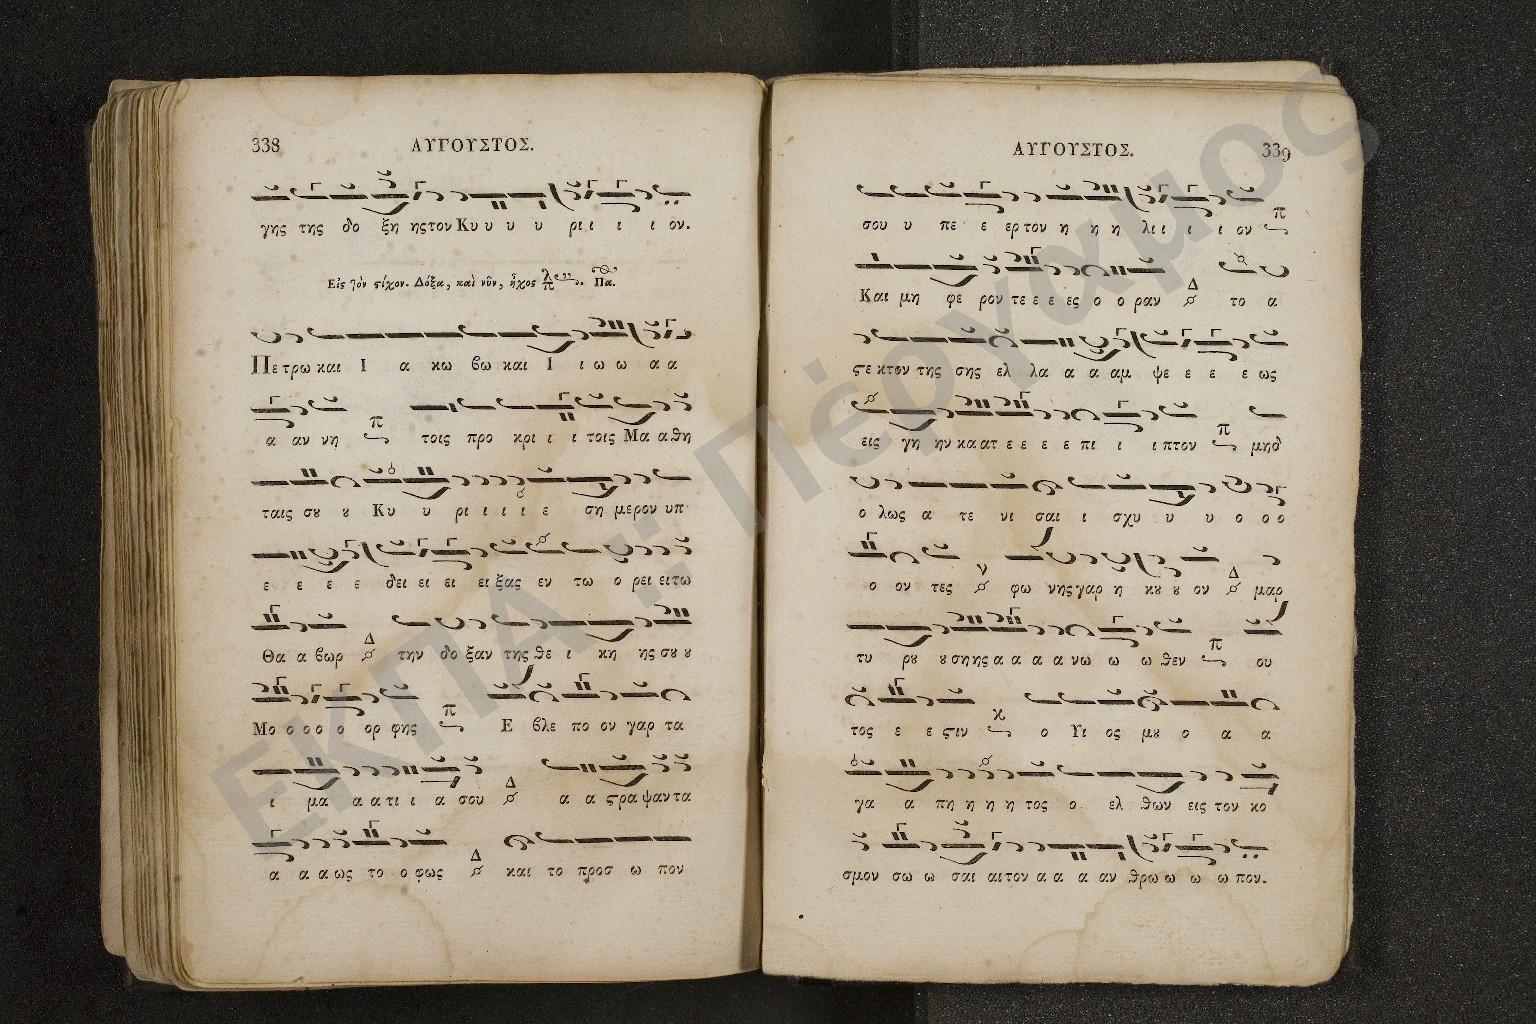 338 ΑΥΓΟΥΣΤΟΣ.
γης της δο ξη ης τον Κυ υ υ υ ρι ι ι ι ον.
Εἰς τὸν στίχον. Δόξα, καὶ νῦν, ἦχος λ π Πα.
Πε τρω και Ι α κω βω και Ι ι ω ω α α
α αν νη π τοις προ κρι ι ι τοις Μα α θη
ταις σȣ ȣ Κυ υ ρι ι ι ι ε ση μερον υπ
ε ε ε ε δει ει ει ει ξας εν τω ο ρει ει τω
Θα α βωρ Δ την δο ξαν της θε ι κη ης σȣ ȣ
Μο ο ο ο ο ορ φης π Ε βλε πο ον γαρ τα
ι μα α α τι ι α σου Δ α α ϛρα ψαν τα
α α α ως το ο φως Δ και το προσ ω πον
ΑΥΓΟΥΣΤΟΣ. 339
σου υ πε ε ερ τον η η η λι ι ι ι ον π
Και μη φε ρον τε ε ε ες ο ο ραν Δ το α
ϛε κτον της σης ελ λα α α αμ ψε ε ε ε ως
εις γη ην κα ατ ε ε ε ε πι ι ι πτον π μηδ
ο λως α τε νι σαι ι σχυ υ υ ο ο ο
ο ον τες ν φω νης γαρ η κȣ ȣ ον Δ μαρ
τυ ρȣ ȣ σης ης α α α α νω ω ω θεν π ου
τος ε ε ϛιν κ ο Υι ος μȣ ο α α
γα α πη η η η τος ο ελ θων εις τον κο
σμον σω ω σαι αι τον α α α αν θρω ω ω ω πον.
ΕΚΠΑ :: Πέργαμος